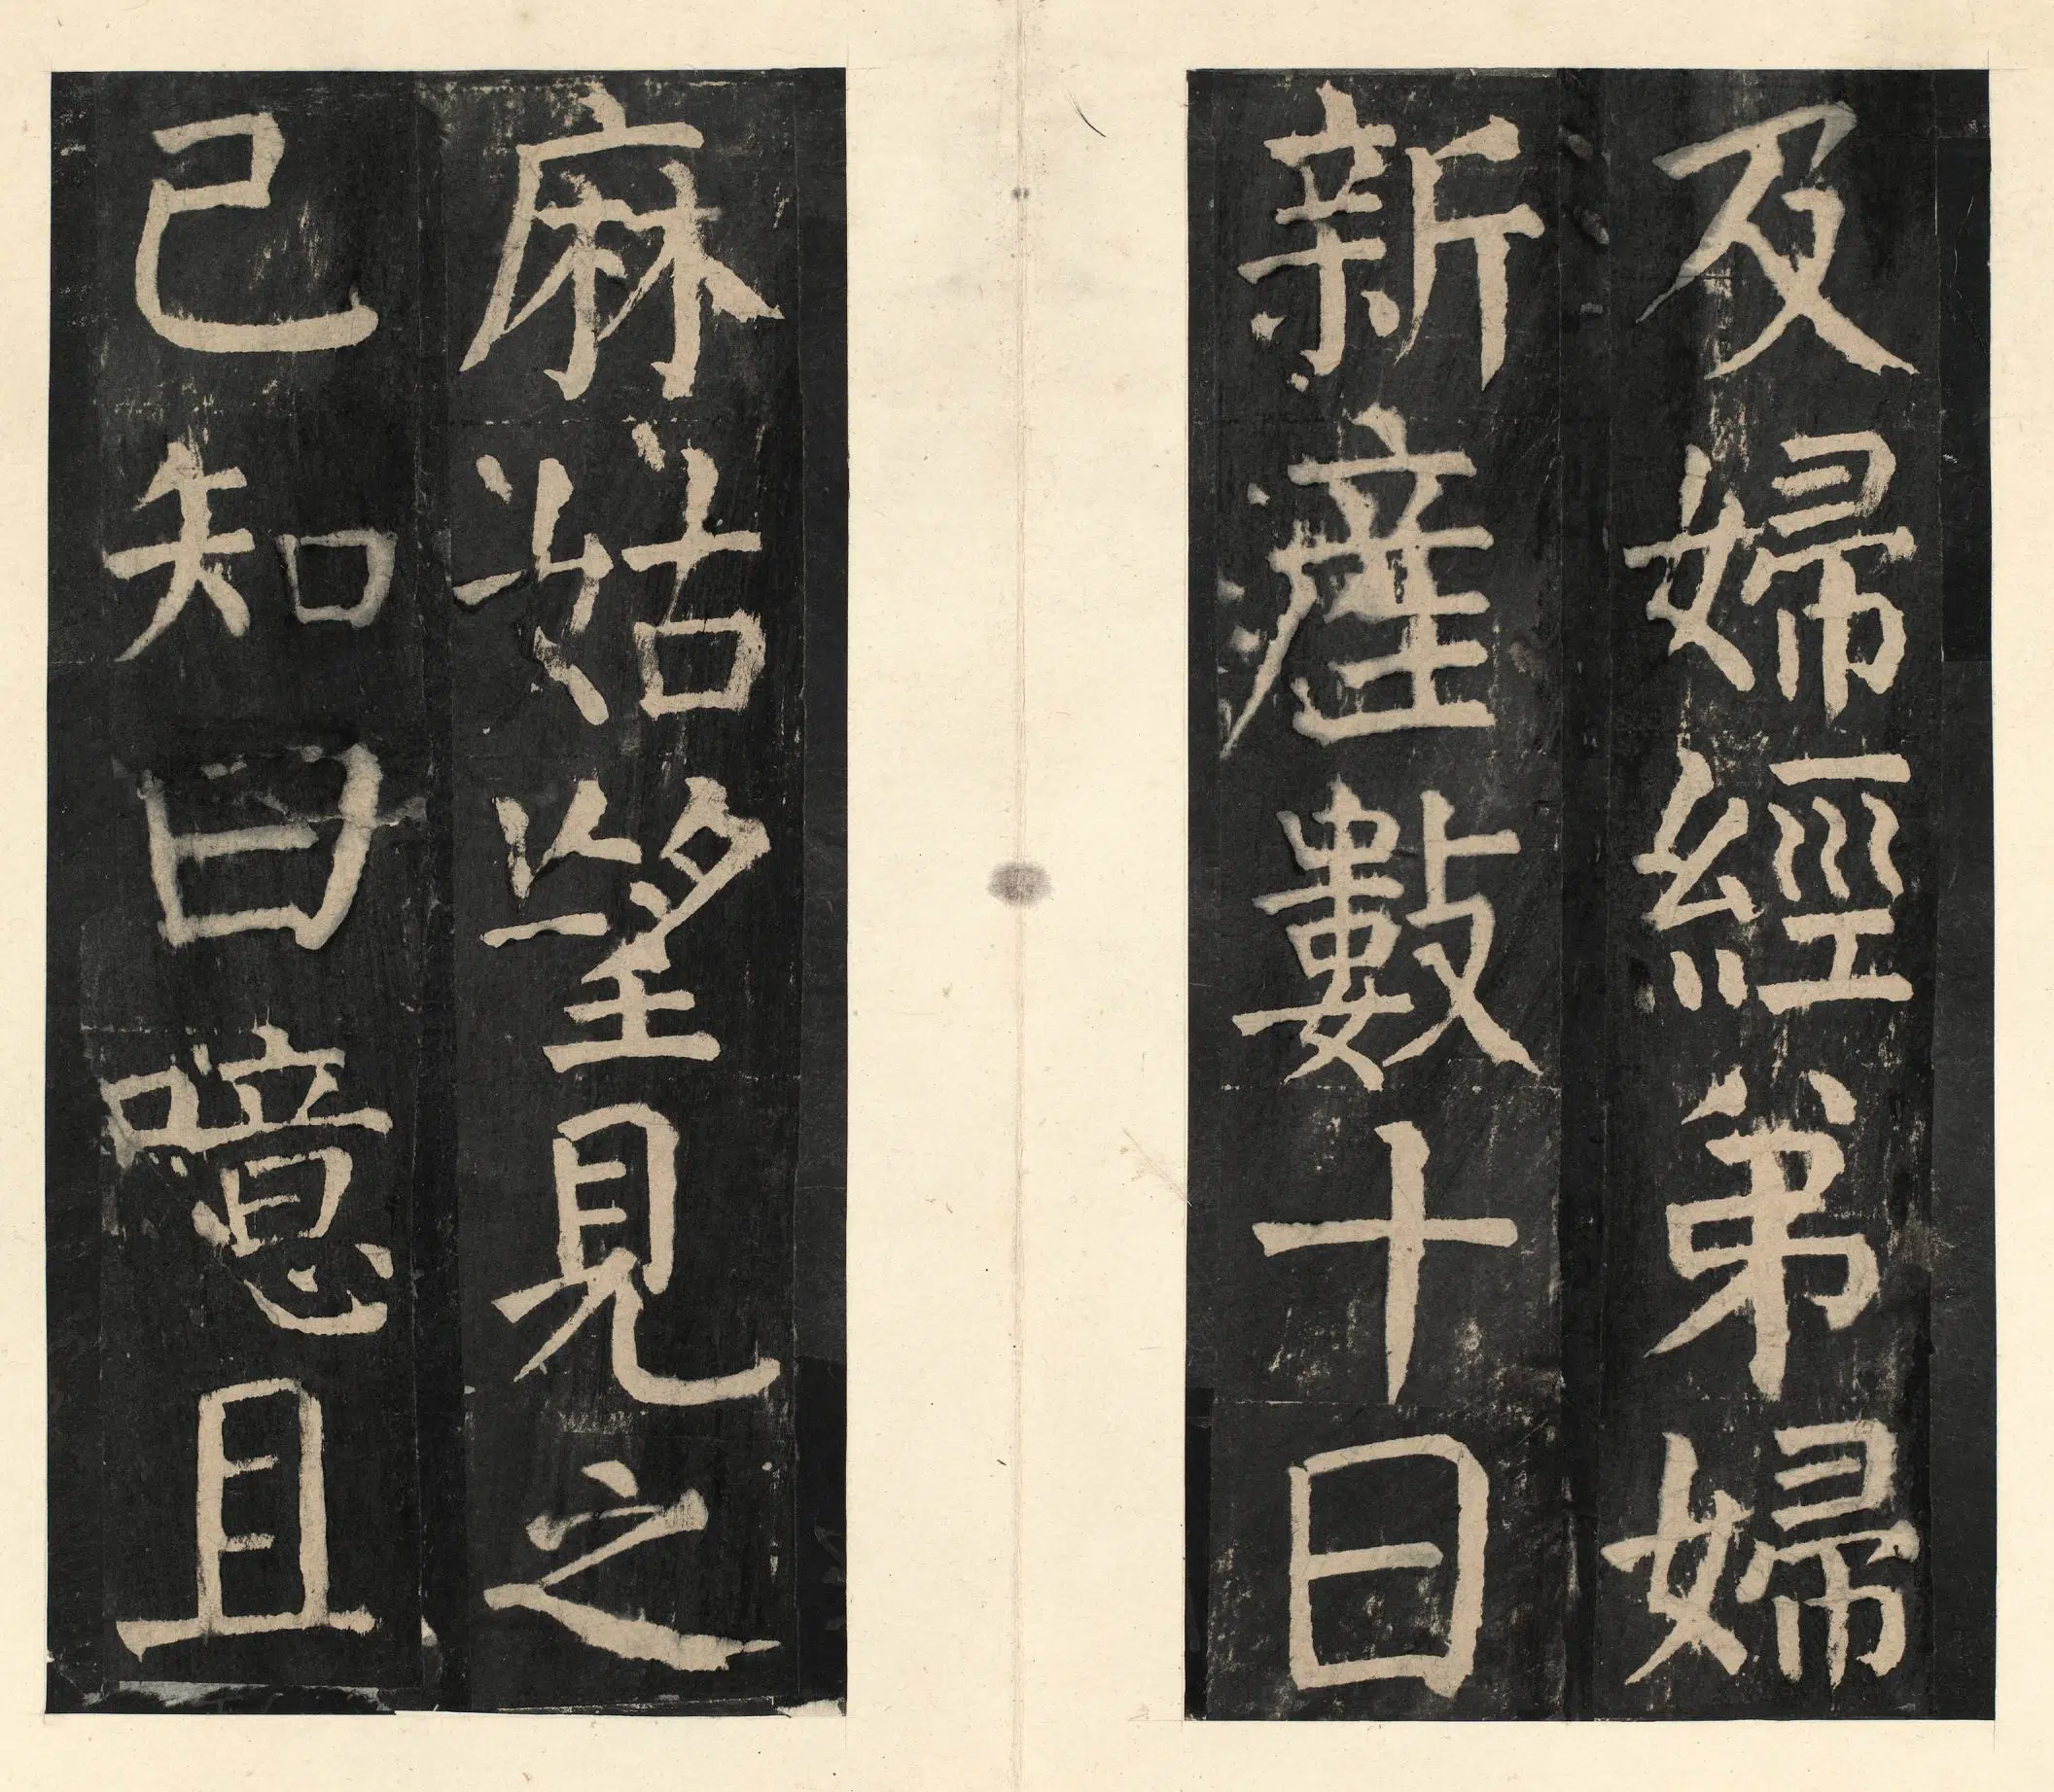 及婦經弟婦
新產數十日
麻姑望見之
已知曰噫且